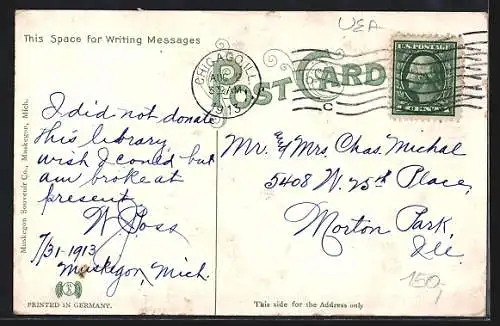 This Space for Writing Messages
USA
CHICAGO, ILL.
AUG
1913
C
POST CARD
U.S. POSTAGE
I did not donate
this library
wish I could but
am broke at
present.
W. Goss
7/31-1913
Muskegon, Mich.
Mr. & Mrs. Chas. Michal
5408 W. 25th Place,
Morton Park,
Ill.
150,-
Muskegon Souvenir Co., Muskegon, Mich.
PRINTED IN GERMANY.
This side for the Address only